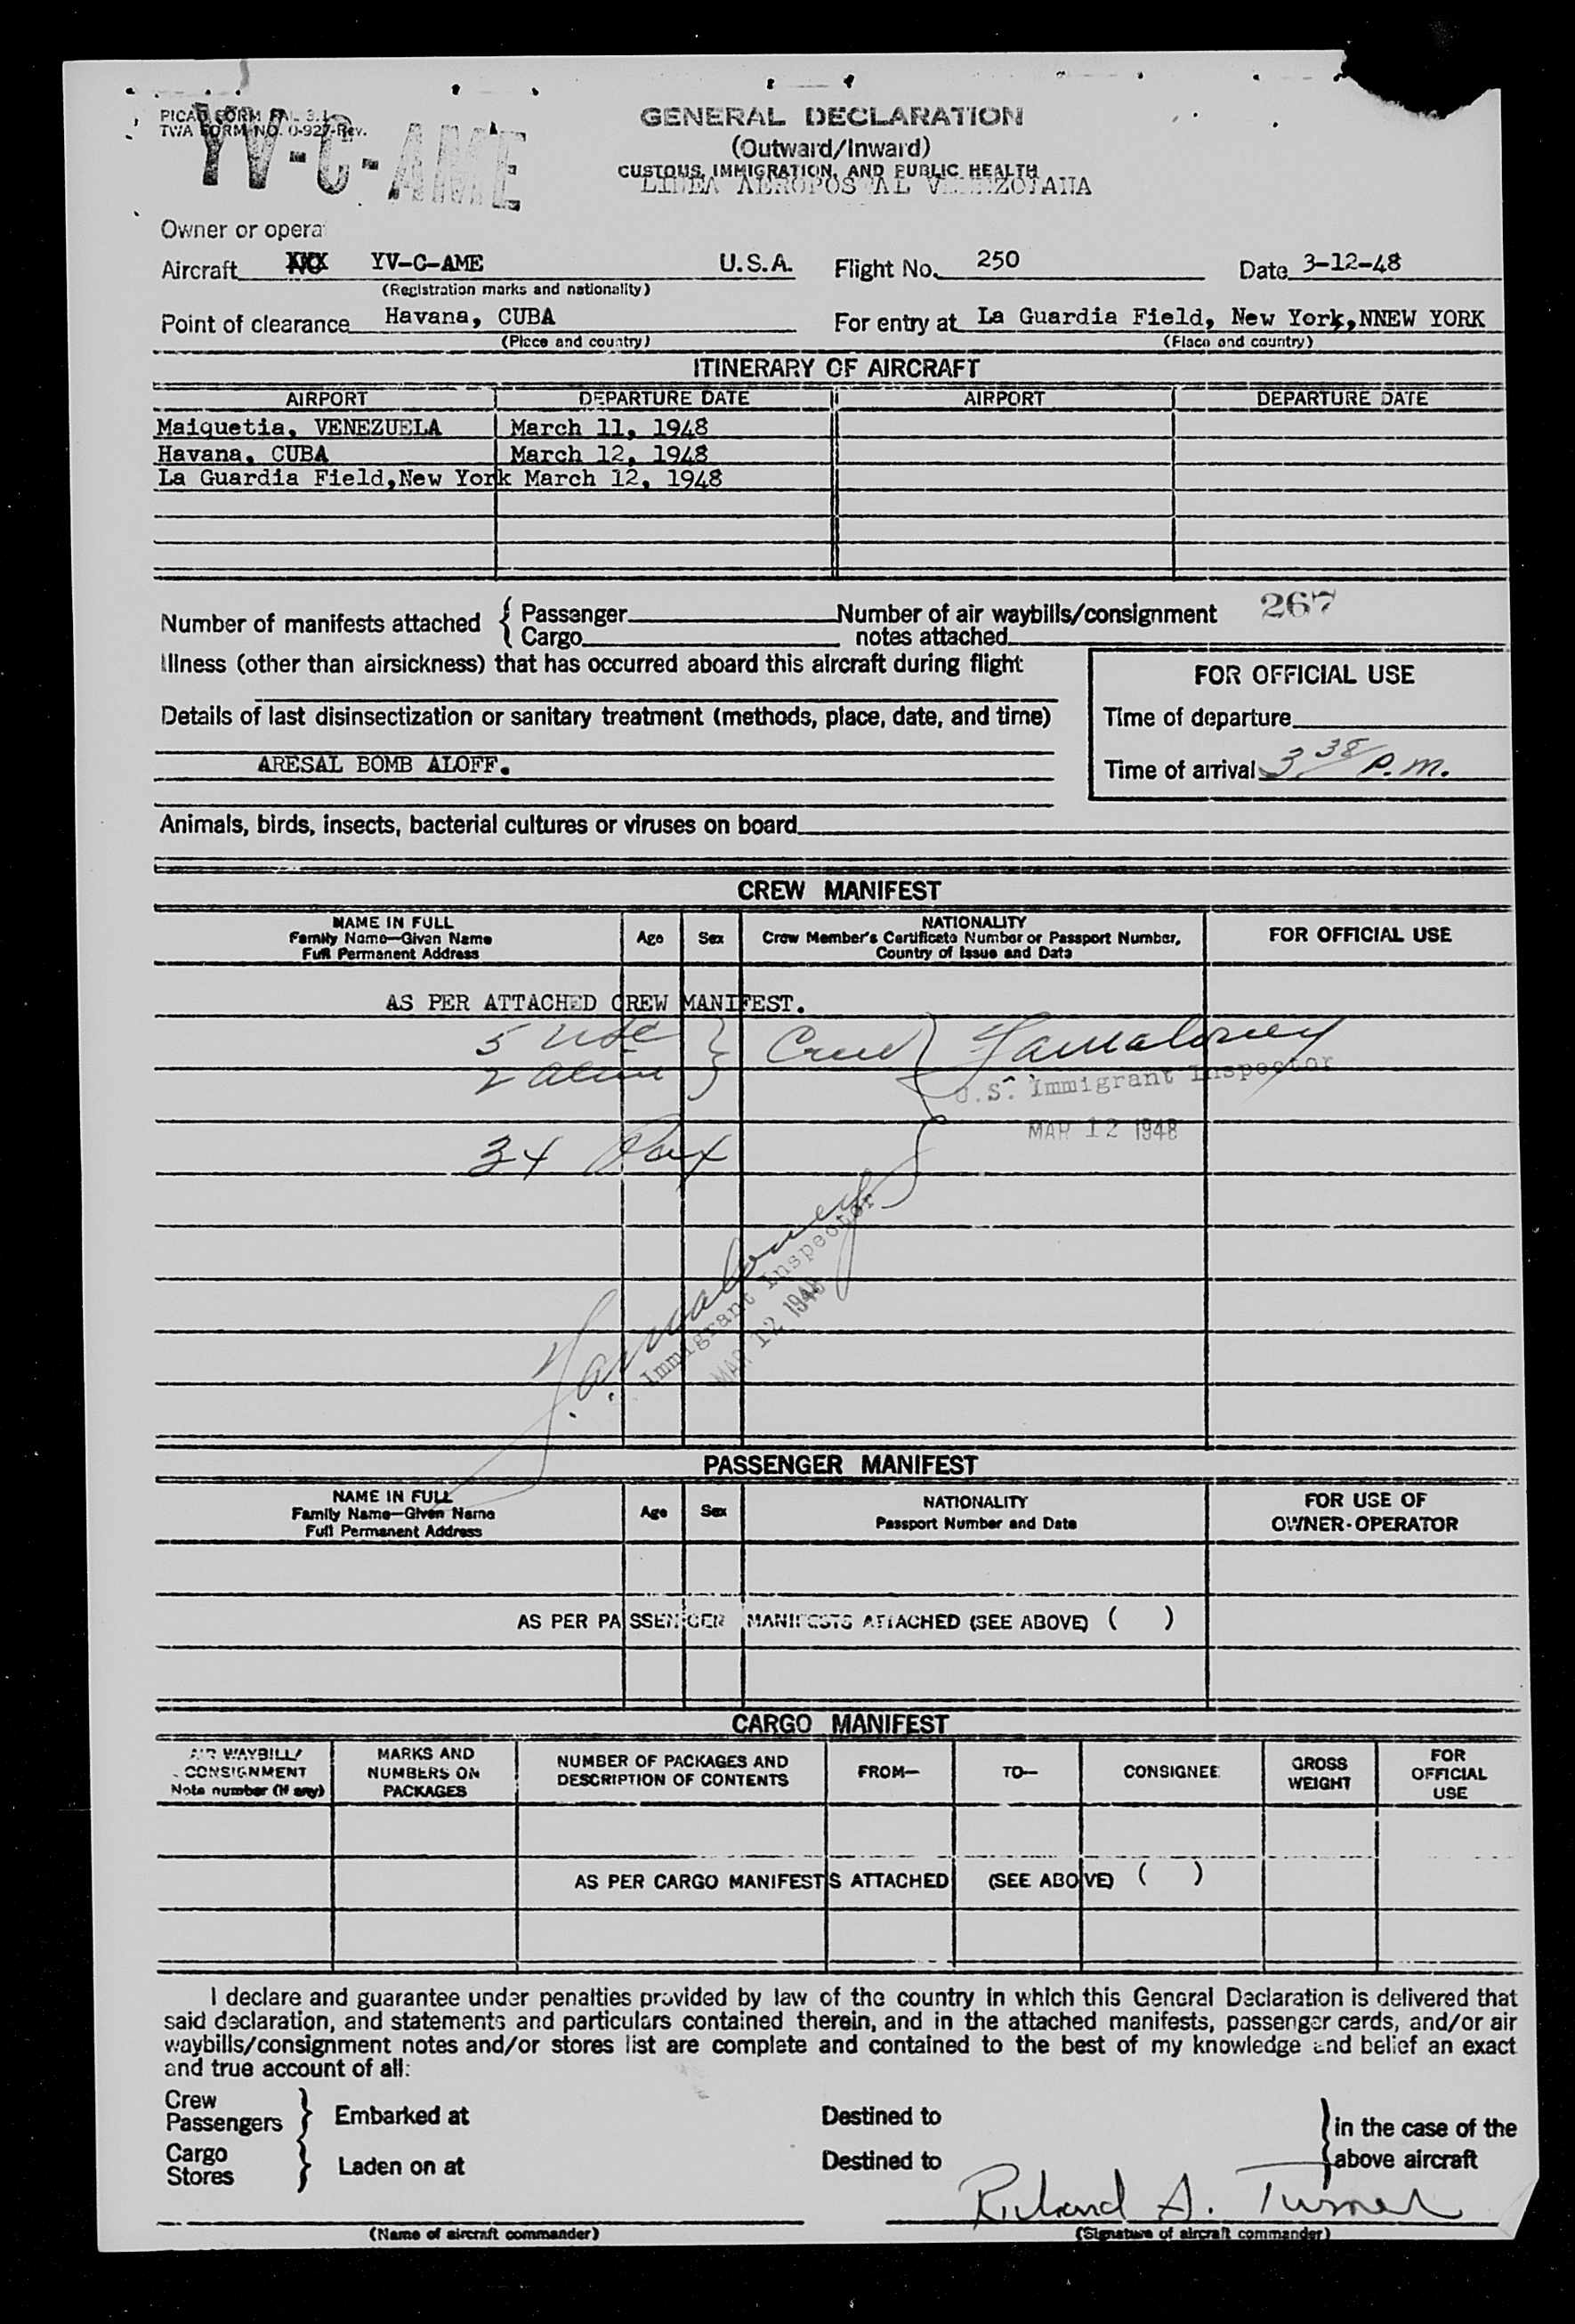 PICAO FORM FAL 3.1
TWA FORM NO. O-927-Rev.
YV-C-AME
GENERAL DECLARATION
(Outward/Inward)
CUSTOMS, IMMIGRATION, AND PUBLIC HEALTH
LINEA AEROPOSTAL VENEZOLANA
Owner or opera
Aircraft YV-C-AME U.S.A. Flight No. 250 Date 3-12-48
(Registration marks and nationality)
Point of clearance Havana, CUBA For entry at La Guardia Field, New York, NNEW YORK
(Place and country) (Place and country)
ITINERARY OF AIRCRAFT
AIRPORT DEPARTURE DATE AIRPORT DEPARTURE DATE
Maiquetia, VENEZUELA March 11, 1948
Havana, CUBA March 12, 1948
La Guardia Field,New York March 12, 1948
267
Number of manifests attached { Passenger Number of air waybills/consignment
Cargo notes attached
Illness (other than airsickness) that has occurred aboard this aircraft during flight:
FOR OFFICIAL USE
Details of last disinsectization or sanitary treatment (methods, place, date, and time)
Time of departure
ARESAL BOMB ALOFF.
Time of arrival 3 38 P.M.
Animals, birds, insects, bacterial cultures or viruses on board
CREW MANIFEST
NAME IN FULL
Family Name—Given Name
Full Permanent Address
Age Sex
NATIONALITY
Crew Member's Certificate Number or Passport Number,
Country of Issue and Date
FOR OFFICIAL USE
AS PER ATTACHED CREW MANIFEST.
5 USC } Crew
2 alien
U.S. Immigrant Inspector
MAR 12 1948
34 Pax
Immigrant Inspector
MAR 12 1948
PASSENGER MANIFEST
NAME IN FULL
Family Name—Given Name
Full Permanent Address
Age Sex
NATIONALITY
Passport Number and Date
FOR USE OF
OWNER-OPERATOR
AS PER PASSENGER MANIFESTS ATTACHED (SEE ABOVE) ( )
CARGO MANIFEST
AIR WAYBILL/
CONSIGNMENT
Note number (if any)
MARKS AND
NUMBERS ON
PACKAGES
NUMBER OF PACKAGES AND
DESCRIPTION OF CONTENTS
FROM—
TO—
CONSIGNEE
GROSS
WEIGHT
FOR
OFFICIAL
USE
AS PER CARGO MANIFESTS ATTACHED (SEE ABOVE) ( )
I declare and guarantee under penalties provided by law of the country in which this General Declaration is delivered that
said declaration, and statements and particulars contained therein, and in the attached manifests, passenger cards, and/or air
waybills/consignment notes and/or stores list are complete and contained to the best of my knowledge and belief an exact
and true account of all:
Crew
Passengers } Embarked at Destined to } in the case of the
Cargo
Stores } Laden on at Destined to above aircraft
Richard A. Turner
(Name of aircraft commander) (Signature of aircraft commander)